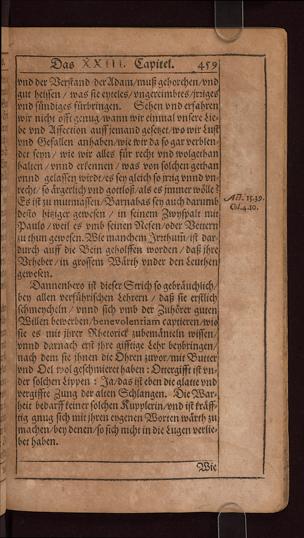 Das XXIII. Capitel. 459
vnd der Verstand der Adam / muß gehorchen / vnd
gut heissen / was sie eyteles / vngereimbtes / jrriges
vnd sündiges fürbringen. Sehen vnd erfahren
wir nicht offt genug / wann wir einmal vnsere Lie-
be vnd Affection auff jemand gesetzet / wo wir Lust
vnd Gefallen anhaben / wie wir da so gar verblen-
det seyn / wie wir alles für recht vnd wolgethan
halten / vnnd erkennen / was von solchen gethan
vnnd gelassen wirdt / es sey gleich so jrrig vnnd vn-
recht / so ärgerlich vnd gottloß / als es immer wölle?
Es ist zu mutmassen / Barnabas sey auch darumb
desto hitziger gewesen / in seinem Zwyspalt mit
Paulo / weil es vmb seinen Nefen / oder Vettern
zu thun gewesen. Wie manchem Jrrthum ist dar-
durch auff die Bein geholffen worden / daß jhre
Vrheber / in grossem Wärth vnder den Leuthen
gewesen.
Act. 15.39.
Col. 4.10.
Dannenhero ist dieser Strich so gebräuchlich /
bey allen verführischen Lehrern / daß sie erstlich
schmeycheln / vnnd sich vmb der Zuhörer guten
Willen bewerben / benevolentiam captieren / wie
sie es mit jhrer Rhetorick zubemänteln wissen /
vnnd darnach erst jhre gifftige Lehr beybringen /
nach dem sie jhnen die Ohren zuvor / mit Butter
vnd Oel wol geschmieret haben: Ottergifft ist vn-
der solchen Lippen: Ja / das ist eben die glatte vnd
vergiffte Zung der alten Schlangen. Die War-
heit bedarff keiner solchen Kupplerin / vnd ist kräff-
tig gnug sich mit jhren eygenen Worten wärth zu
machen / bey denen / so sich nicht in die Lugen verlie-
bet haben.
Wie